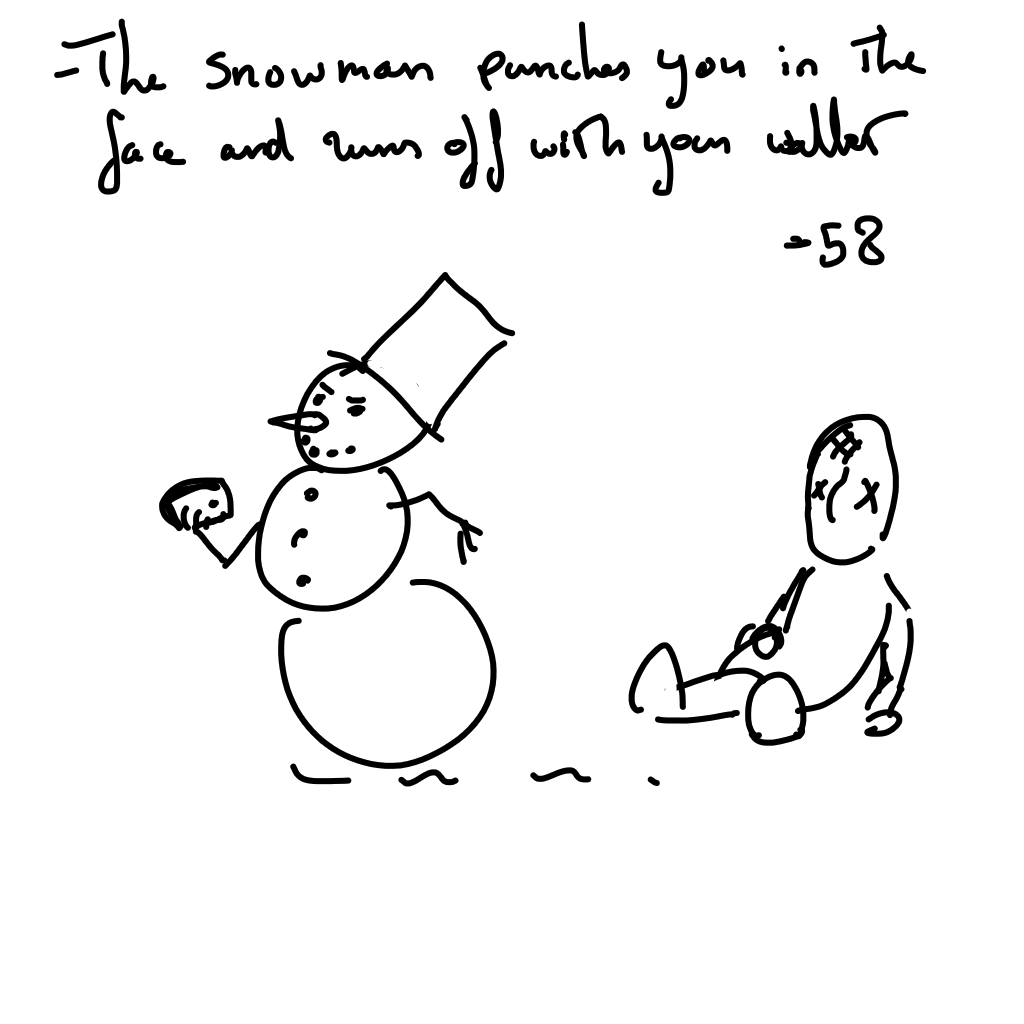 - The snowman punches you in the
face and runs off with your wallet
- 58